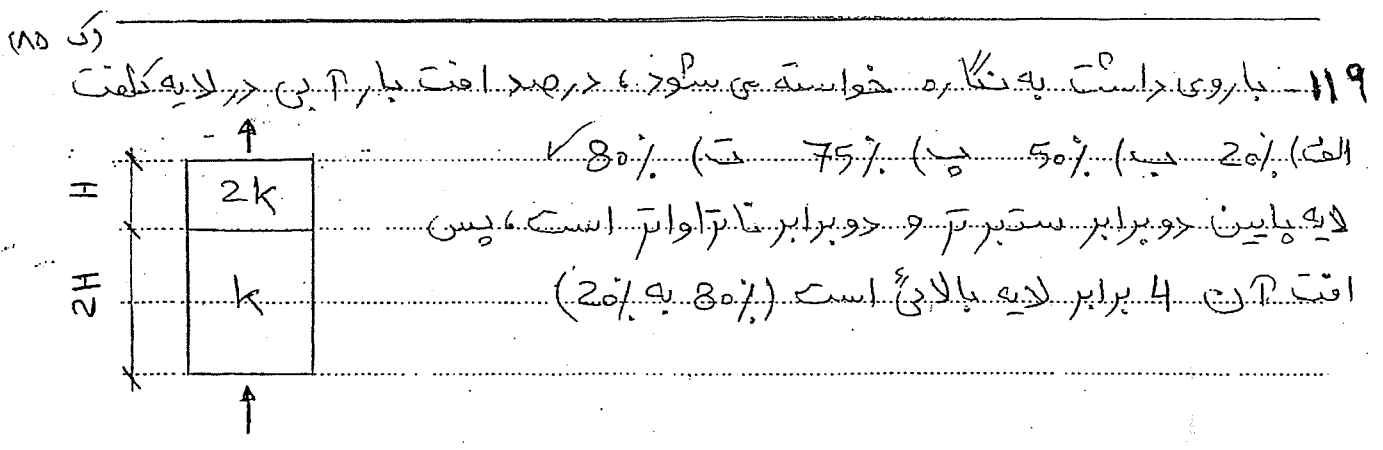 (ک ۸۵)
۱۱۹- با روی داشت به نگاره خواسته می شود، درصد افت بار آبی در لایه کلفت
الف) 20% ب) 50% پ) 75% ت) 80% ✓
لایه پایین دو برابر ستبرتر و دو برابر ناتراواتر است، پس
افت آن 4 برابر لایه بالائی است (80% به 20%)
H
2k
2H
k